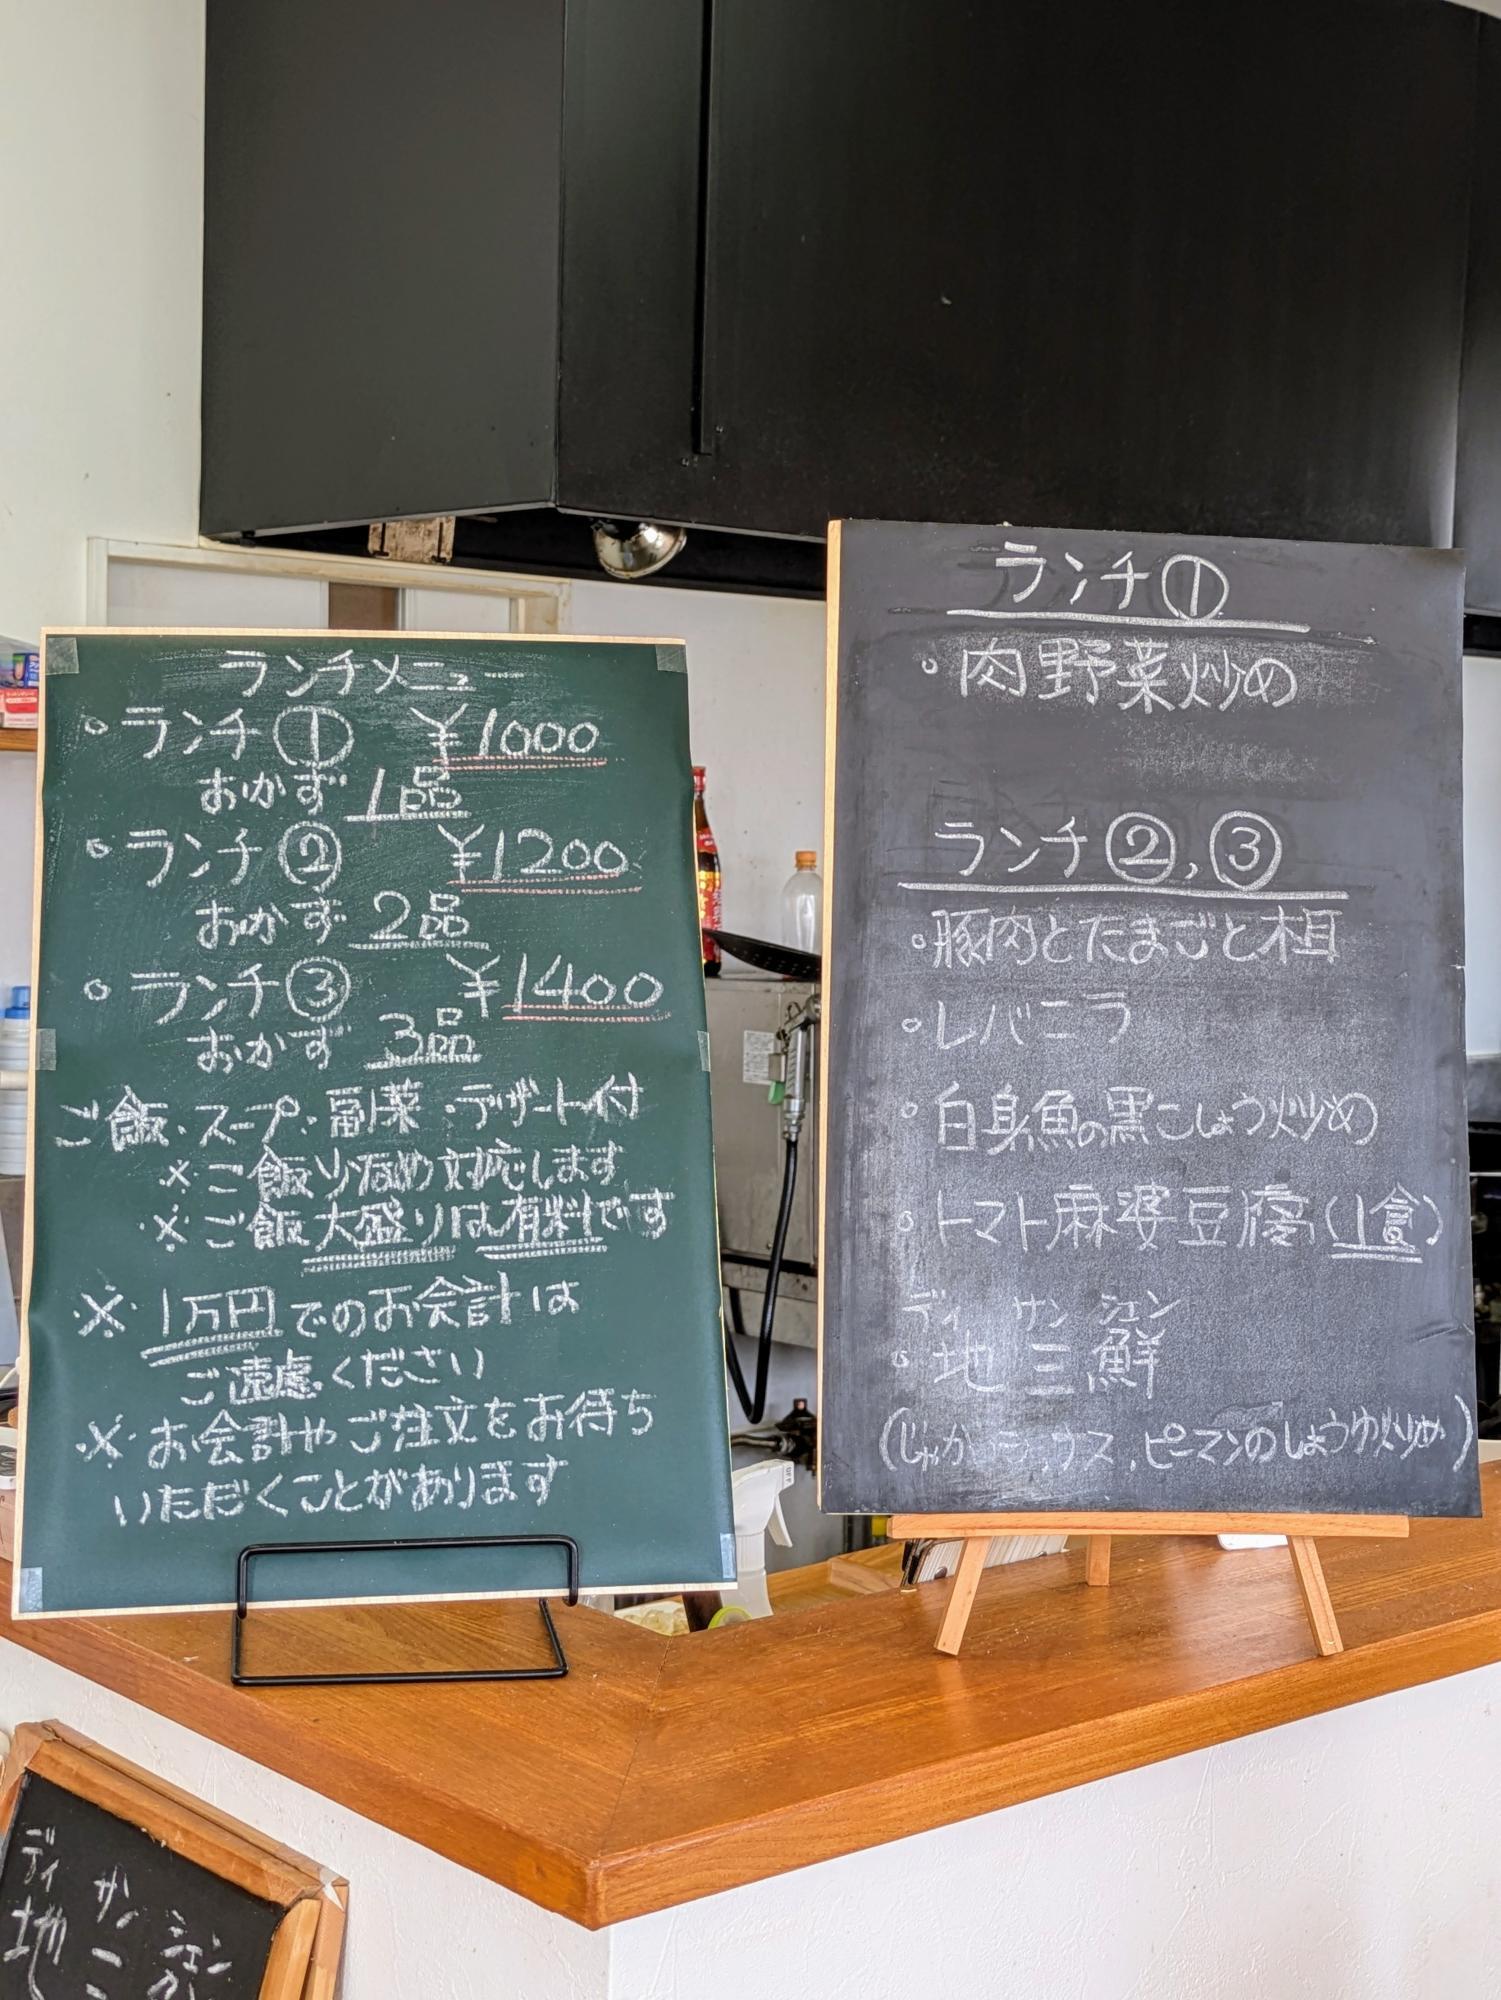 ランチメニュー
○ ランチ① ¥1000
おかず 1品
○ ランチ② ¥1200
おかず 2品
○ ランチ③ ¥1400
おかず 3品
ご飯・スープ・副菜・デザート付
※ご飯少なめ対応します
※ご飯大盛りは有料です
※ 1万円でのお会計は
ご遠慮ください
※ お会計やご注文をお待ち
いただくことがあります
ランチ①
○ 肉野菜炒め
ランチ②,③
○ 豚肉とたまごと木耳
○ レバニラ
○ 白身魚の黒こしょう炒め
○ トマト麻婆豆腐(1食)
ディ サン シェン
○ 地三鮮
(じゃが ナス、ピーマンのしょうゆ炒め)
ディ サン シェン
地三